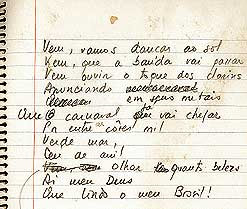 Vem, vamos dançar ao sol
Vem, que a banda vai passar
Vem ouvir o toque dos clarins
Anunciando
em seus metais
Que O carnaval já vai chegar
En entre cores mil
Verde mar,
Céu de anil
olhar quanta beleza
Ai meu Deus
Que lindo o meu Brasil!